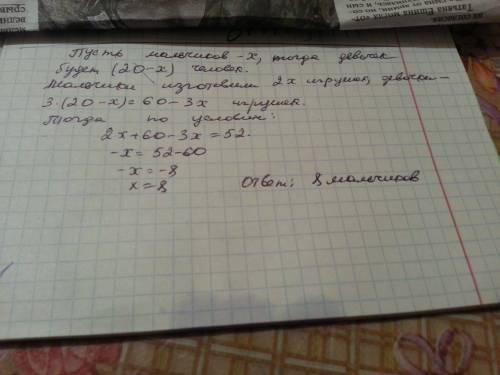 Пусть мальчиков -х, тогда девочек
будет (20-х) человек.
Мальчики изготовили 2х игрушек, девочки-
3·(20-х)=60-3х игрушек.
Тогда по условию:
2х+60-3х=52.
-х=52-60
-х=-8
х=8
Ответ: 8 мальчиков
Татьяна Ешина